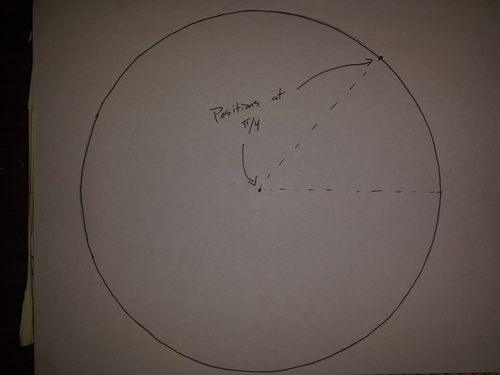 Positions at
π/4